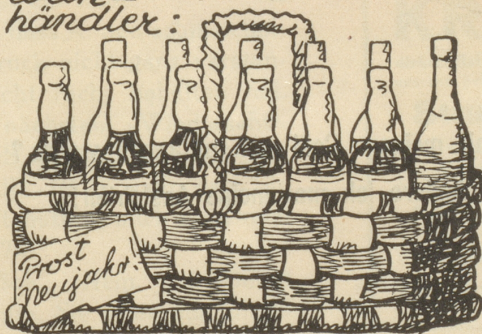 händler:
Prost
Neujahr!